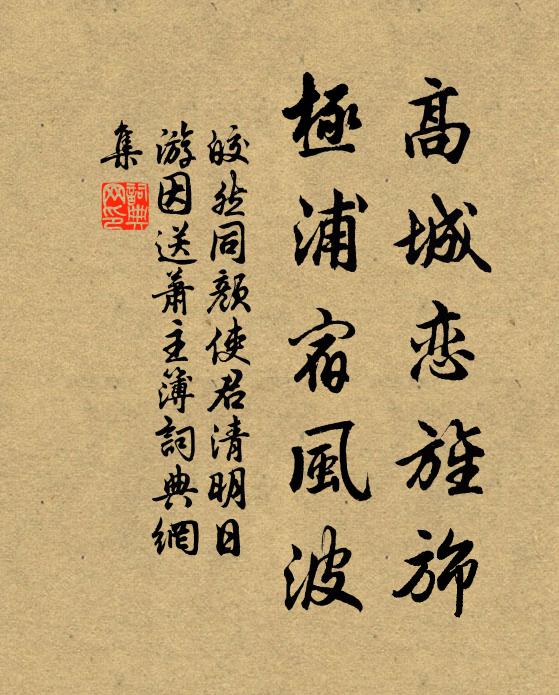 髙城恋旌旆
極浦宿風波
皎然同顏使君清明日
游因送蕭主簿詞典網
集
詞典
网印